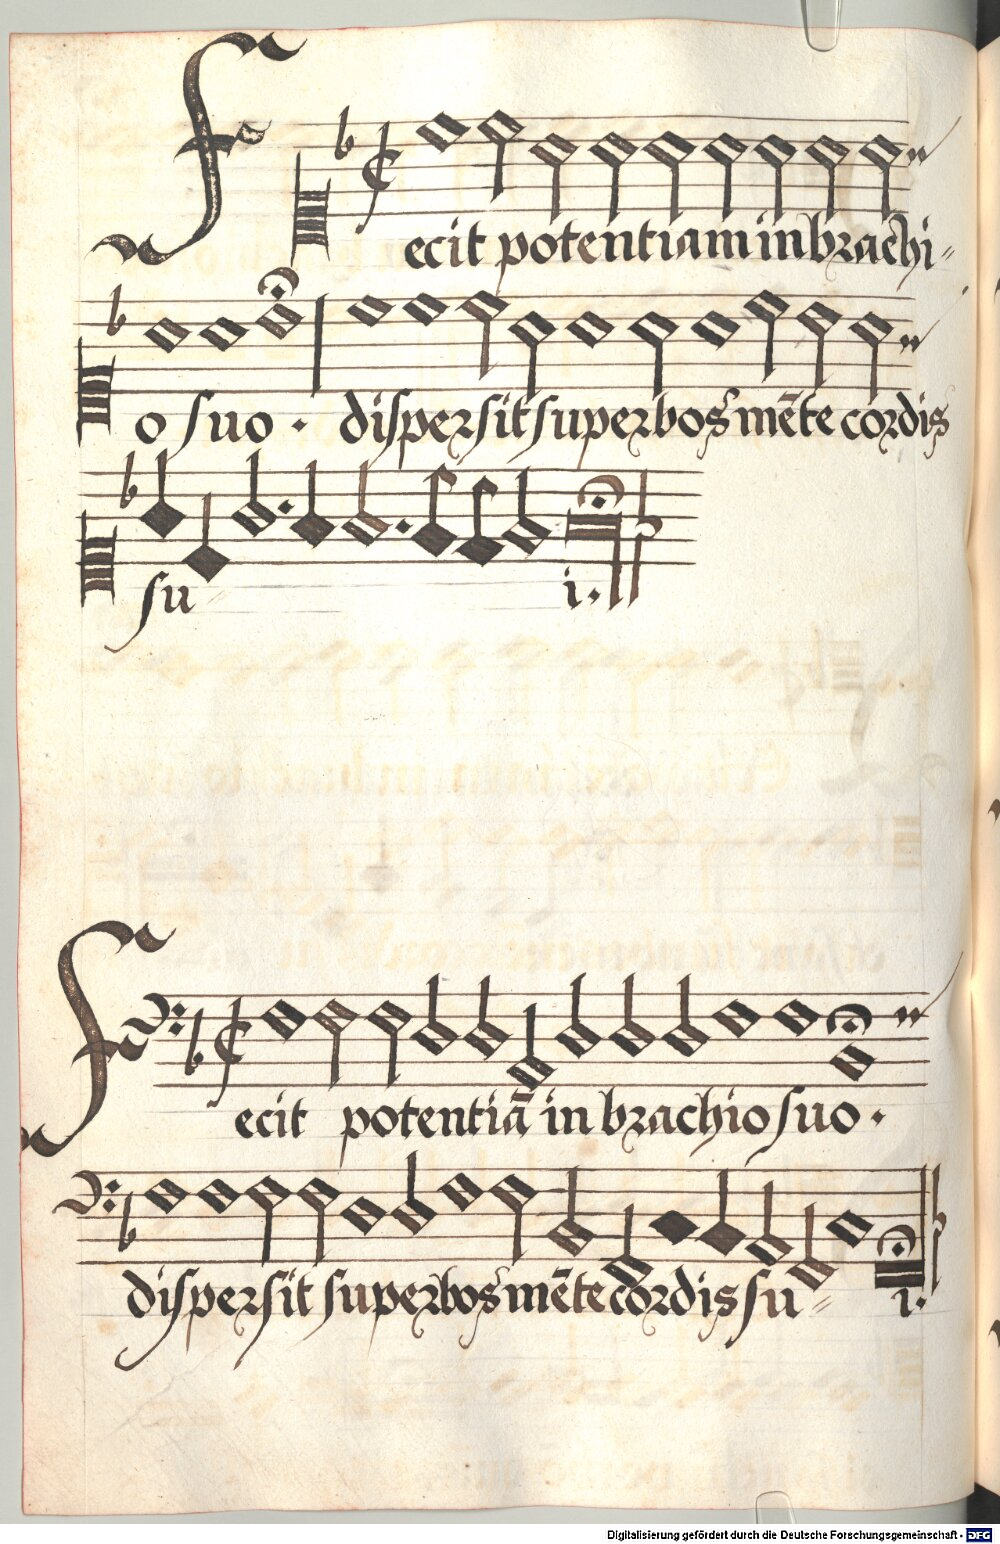 Fecit potentiam in brachi-
o suo · dispersit superbos mēte cordis
su i.
Fecit potentiā in brachio suo ·
dispersit superbos mēte cordis su i.
Digitalisierung gefördert durch die Deutsche Forschungsgemeinschaft - DFG